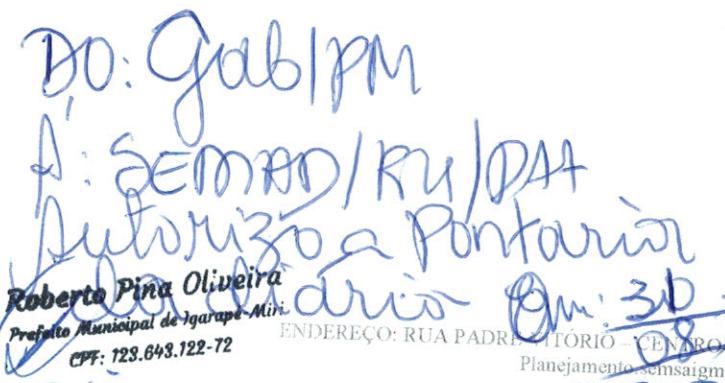 DO: Gab/PM
À: SEMAD/RH/DAF
Autorizo a Portaria
da diária Em: 30
08
Roberto Pina Oliveira
Prefeito Municipal de Igarapé-Miri
CPF: 123.643.122-72
ENDEREÇO: RUA PADRE VITÓRIO – CENTRO
Planejamento.semsaigm